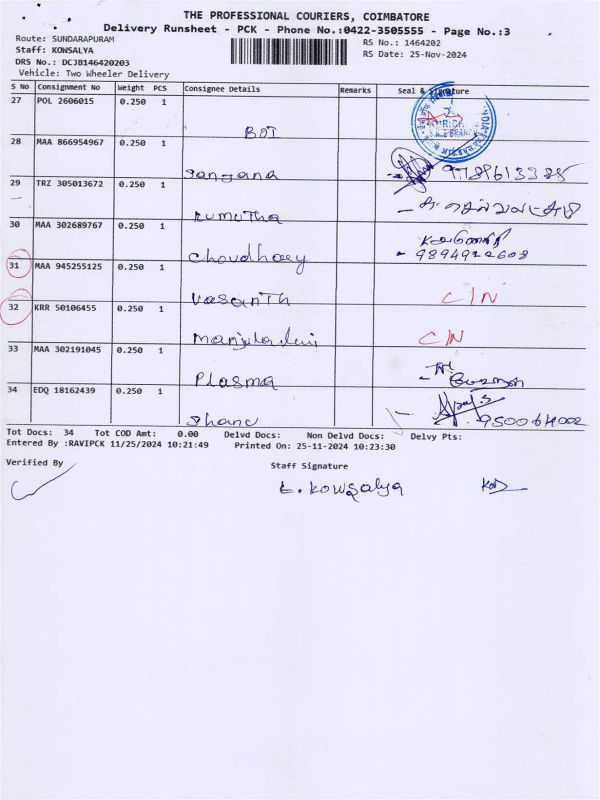 THE PROFESSIONAL COURIERS, COIMBATORE
Delivery Runsheet - PCK - Phone No.:0422-3505555 - Page No.:3
Route: SUNDARAPURAM
RS No.: 1464202
Staff: KOWSALYA
RS Date: 25-Nov-2024
DRS No.: DCJB146420203
Vehicle: Two Wheeler Delivery
S No Consignment No Weight PCS Consignee Details Remarks Seal & Signature
27 POL 2606015 0.250 1 BOI
28 MAA 866954967 0.250 1 Sanjana
29 TRZ 305013672 0.250 1 Kumutha
30 MAA 302689767 0.250 1 Choudhary 9894922608
31 MAA 945255125 0.250 1 Vasanth C/N
32 KRR 50106455 0.250 1 C/N
33 MAA 302191045 0.250 1 Plasma
34 EDQ 18162439 0.250 1
Tot Docs: 34 Tot COD Amt: 0.00 Delvd Docs: Non Delvd Docs: Delvy Pts:
Entered By :RAVIPCK 11/25/2024 10:21:49 Printed On: 25-11-2024 10:23:30
Verified By Staff Signature
K. Kowsalya